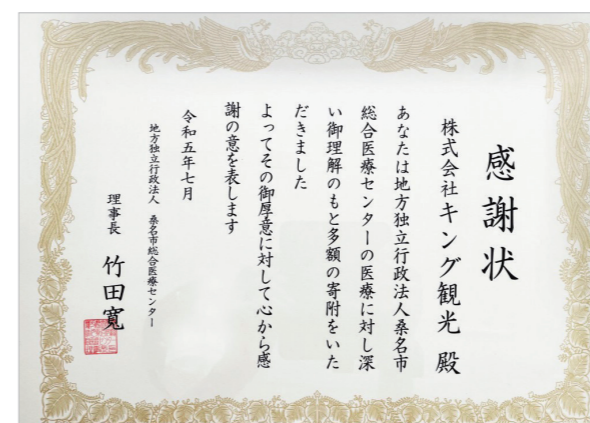 感謝状
株式会社キング観光 殿
あなたは地方独立行政法人桑名市
総合医療センターの医療に対し深
い御理解のもと多額の寄附をいた
だきました
よってその御厚意に対して心から感
謝の意を表します
令和五年七月
地方独立行政法人 桑名市総合医療センター
理事長 竹田寬